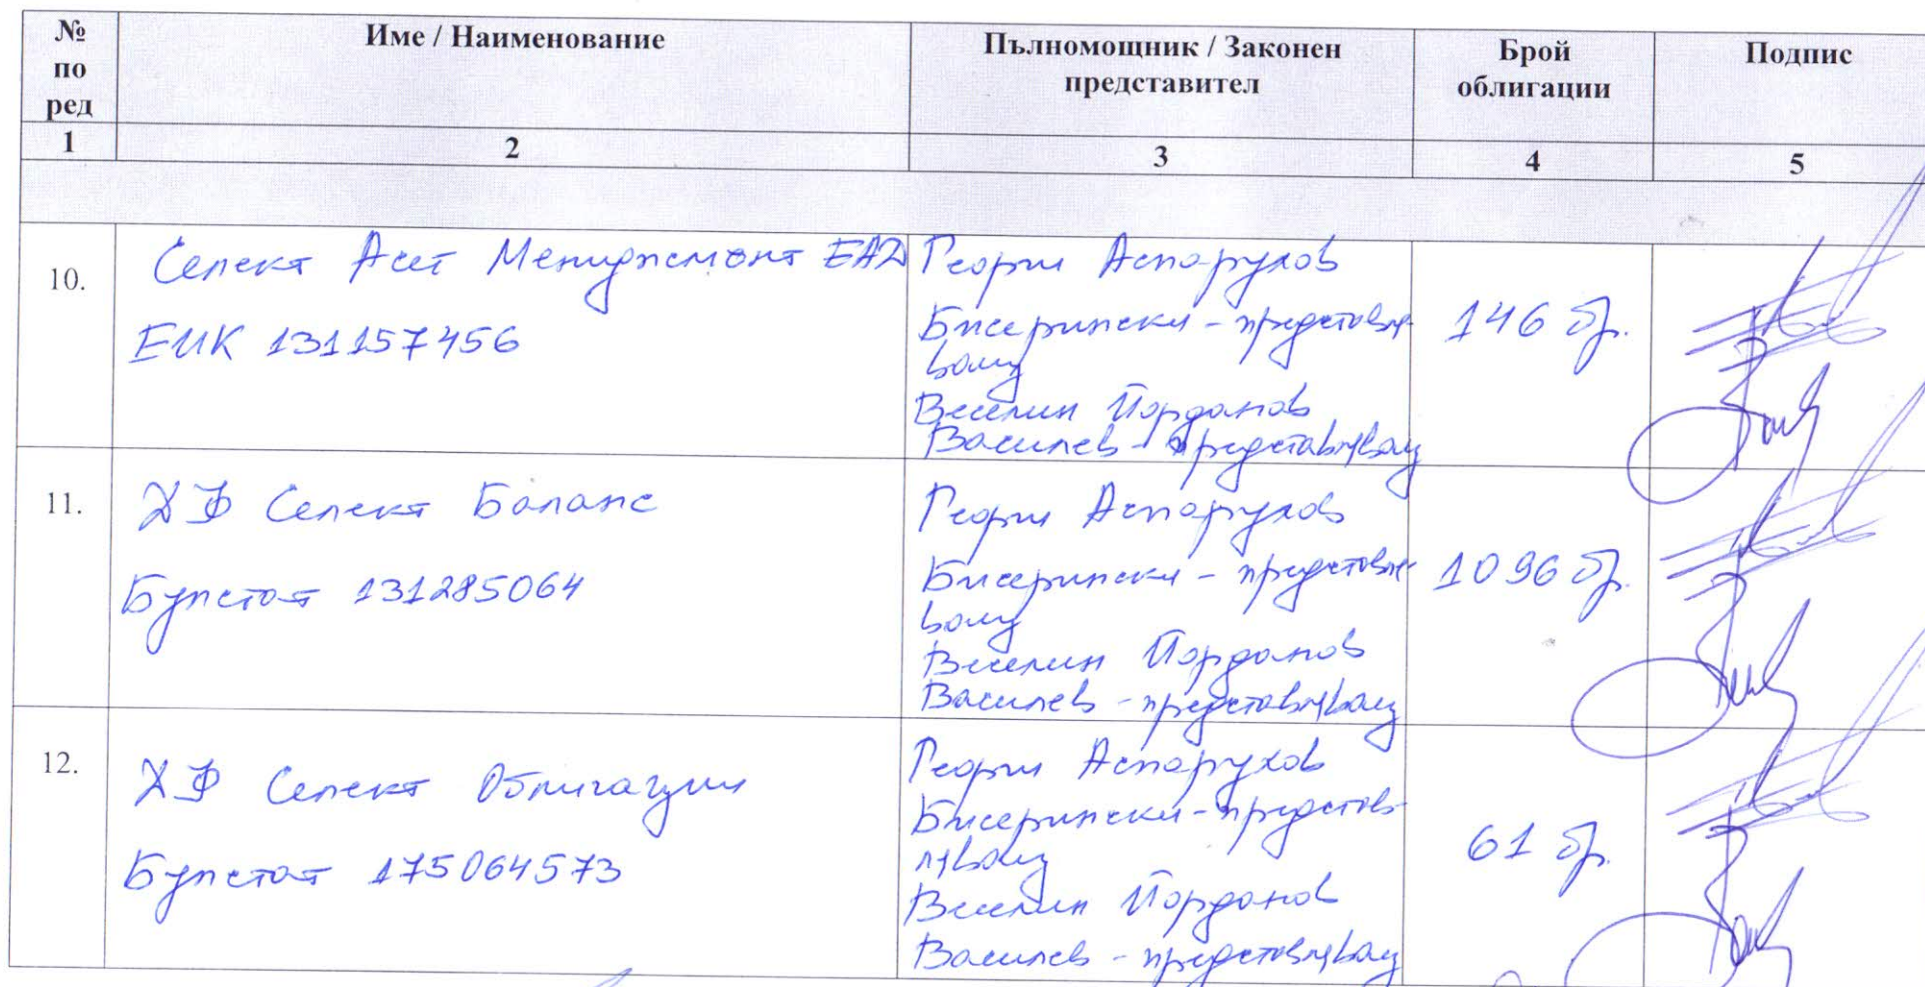 № по ред
Име / Наименование
Пълномощник / Законен представител
Брой облигации
Подпис
1
2
3
4
5
10.
Селект Асет Мениджмънт ЕАД
ЕИК 131157456
Георги Аспарухов
Бисерински - представля-
ващ
Веселин Йорданов
Василев - представляващ
146 бр.
11.
ДФ Селект Баланс
Булстат 131285064
Георги Аспарухов
Бисерински - представля-
ващ
Веселин Йорданов
Василев - представляващ
1096 бр.
12.
ДФ Селект Облигации
Булстат 175064573
Георги Аспарухов
Бисерински - представ-
ляващ
Веселин Йорданов
Василев - представляващ
61 бр.